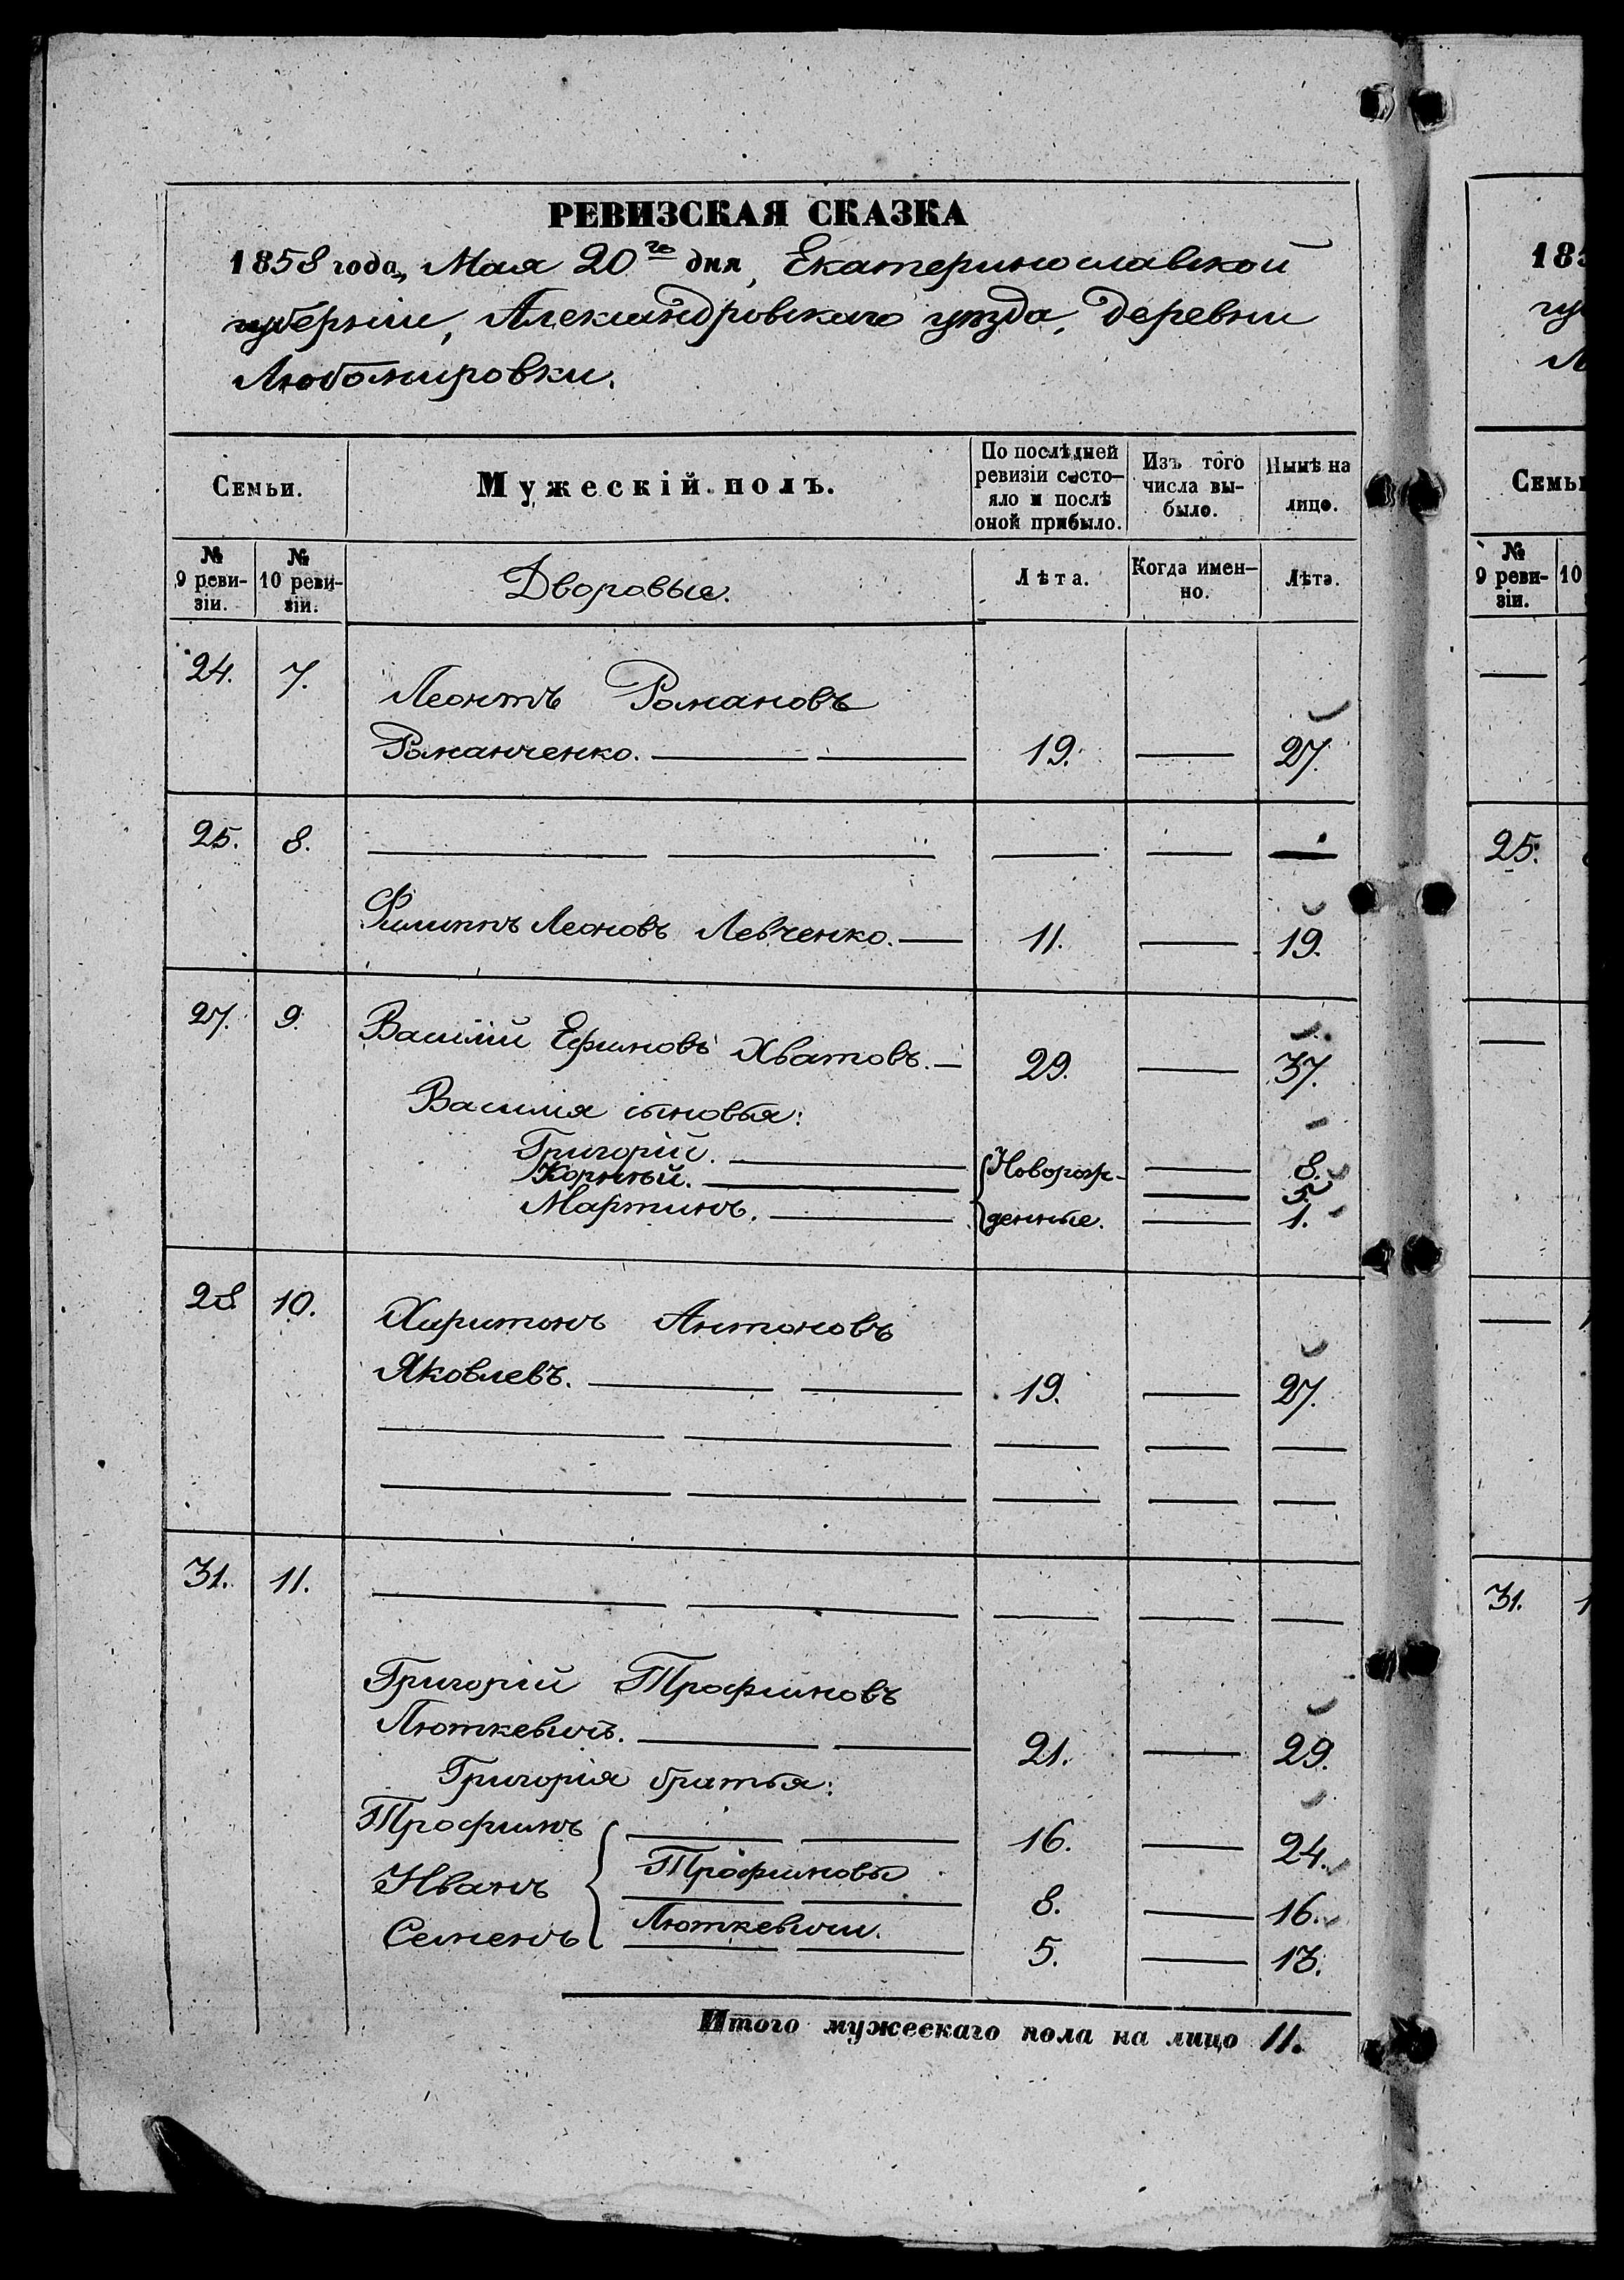 РЕВИЗСКАЯ СКАЗКА
1858 года, Мая 20го дня, Екатеринославской
губернии, Александровскаго уѣзда, деревни
Любомировки.
Семьи. Мужескій полъ. По послѣдней ревизіи состояло и послѣ оной прибыло. Изъ того числа выбыло. Нынѣ на лицо.
№ 9 ревизіи. № 10 ревизіи. Дворовые. Лѣта. Когда именно. Лѣта.
24. 7. Леонтъ Романовъ
Романченко. 19. 27.
25. 8.
Филиппъ Леоновъ Левченко. 11. 19.
27. 9. Василій Ефимовъ Хватовъ. 29. 37.
Василія сыновья:
Григорій. Новорож- 8.
Корнѣй. 5.
Мартинъ. денные. 1.
28 10. Харитонъ Антоновъ
Яковлевъ. 19. 27.
31. 11.
Григорій Трофимовъ
Люткевичъ. 21. 29.
Григорія братья:
Трофимъ 16. 24.
Трофимовы
Иванъ 8. 16.
Люткевичи.
Семенъ 5. 13.
Итого мужескаго пола на лицо 11.
185
гу
Л
Семьи
№ 9 ревизіи. 10
25.
31. 1